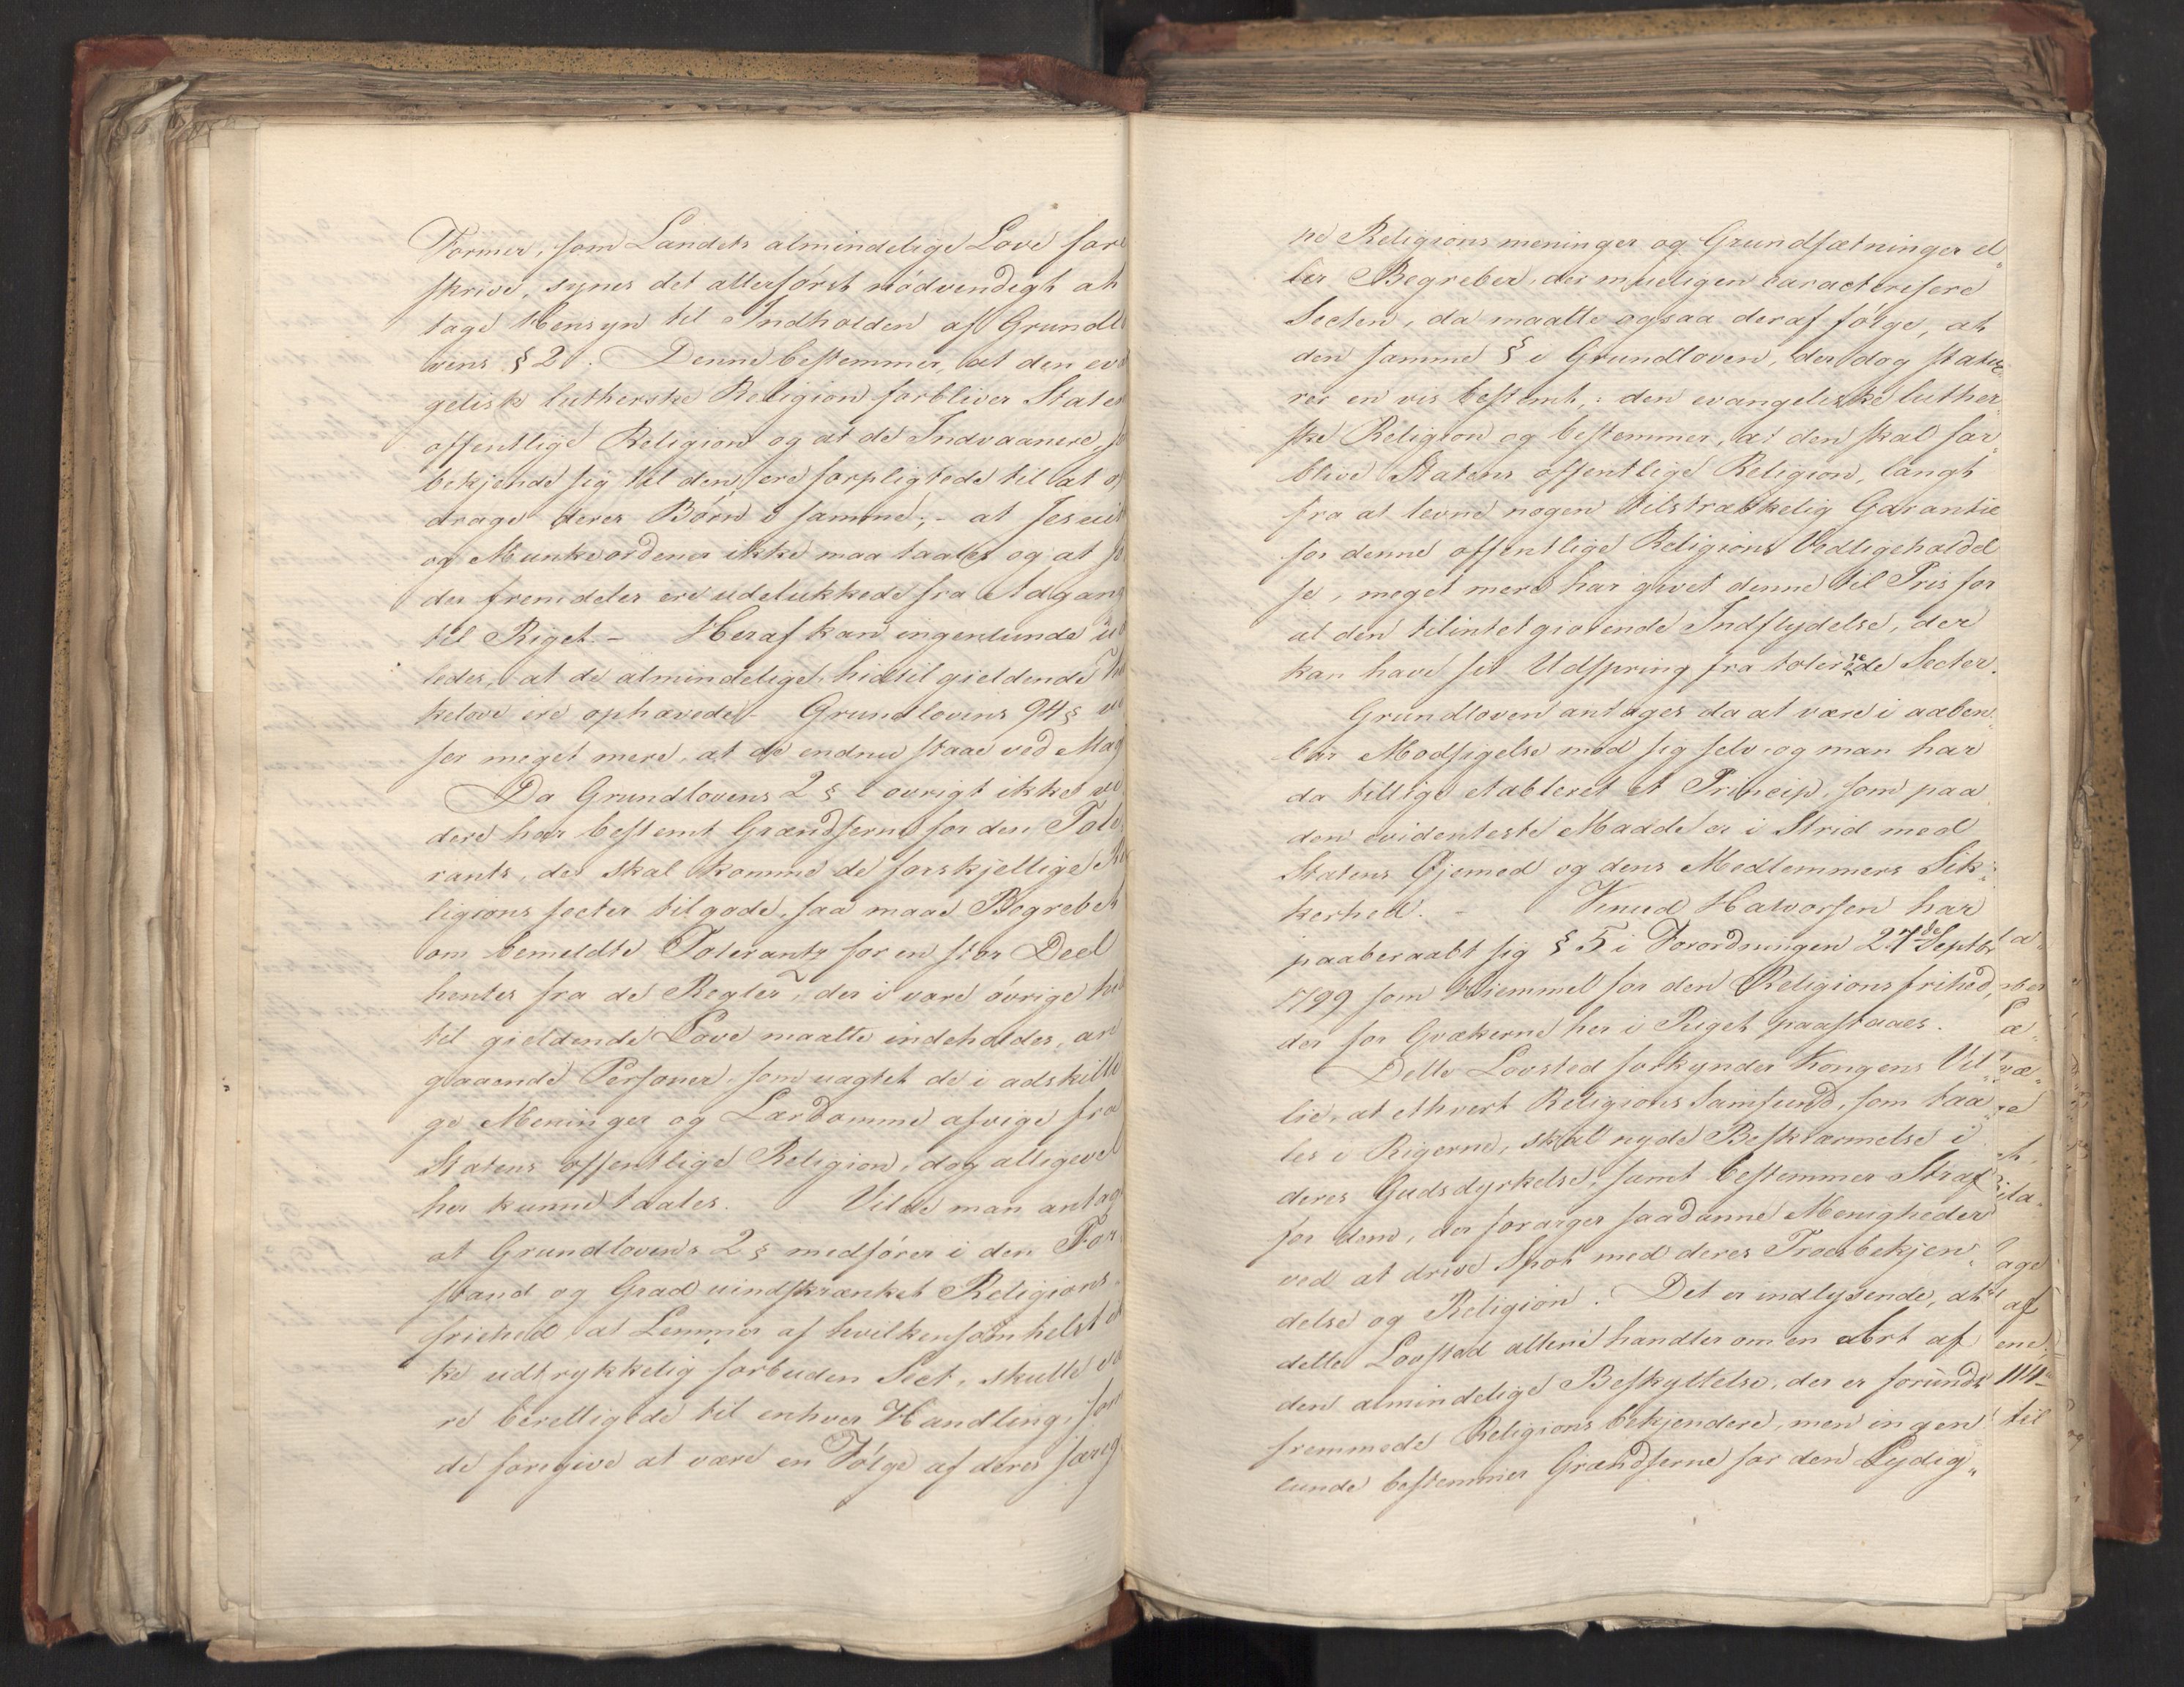 Former, som Landets almindelige Love fore
skrive, synes det allerførst nødvendigt at
tage Hensyn til Indholden af Grundl
vens § 2. Denne bestemmer, at den eva
gelisk lutherske Religion forbliver States
offentlige Religion og at de Indvaanere, so
bekjende sig til den, ere forpligtede til at o
drage deres Børn i samme; - at Jesuit
og Munkeordener ikke maa taales og at Jø
der fremdeles ere udelukkede fra Adgang
til Riget. - Heraf kan ingenlunde ud
ledes, at de almindelige, hidtil gieldende
kelove ere ophævede - Grundlovens 94 § vi
ser meget mere, at de endnu staae ved Mag
Da Grundlovens 2 § i øvrigt ikke vi
dere har bestemt Grændserne for den Tole
rants, der skal komme de forskjellige Re
ligions secter tilgode, saa maae Begrebet
om bemeldte Tolerants for en stor Deel
hentes fra de Regler, der i vore øvrige hid
til gieldende Love maatte indeholdes, an
gaaende Personer, som uagtet de i adskilli
ge Meninger og Lærdomme afvige fra
Statens offentlige Religion, dog alligevel
her kunne taales. Vilde man antage
at Grundlovens 2 § medfører i den For
stand og Grad uindskrænket Religions-
frihed at Lemmer af hvilkensomhelst ik
ke udtrykkelig forbuden Sect, skulle væ
re berettigede til enhver Handling, som
de foregive at være en Følge af deres særeg
ne Religions meninger og Grundsætninger el„
ler Begreber, der mueligen caracterisere
Secten, da maatte ogsaa deraf følge, at
den samme § i Grundloven, der dog statue„
rer en vis bestemt,: den evangeliske luther„
ske Religion og bestemmer, at den skal for„
blive Statens offentlige Religion, langt
fra at levne nogen tilstrækkelig Garantie
for denne offentlige Religions Vedligeholdel
se, meget mere har givet denne til Pris for
al den tilintetgiørende Indflydelse, der
kan have sit Udspring fra tolererede Secter.
Grundloven antages da at være i aaben„
bar Modsigelse med sig selv og man har
da tillige etableret et Princip, som paa
den evidenteste Maade er i Strid med
Statens Øjemed og dens Medlemmers Sik„
kerhed. - Knud Halvorsen har
paaberaabt sig § 5 i Forordningen 27de Septbr
1799 som Hiemmel for den Religionsfrihed,
der for Qvækerne her i Riget paastaaes.
Dette Lovsted forkynder Kongens Vil„
lie, at ethvert Religions Samfund, som taa„
les i Rigerne, skal nyde Beskiærmelse i
deres Gudsdyrkelse, samt bestemmer Straf
for dem, der forarger saadanne Menigheder
ved at drive Spot med deres Troesbekjen„
delse og Religion. Det er indlysende, at
dette Lovsted allene handler om en Art af
den almindelige Beskyttelse, der er forundt
fremmede Religionsbekjendere, men ingen
lunde bestemmer Grændserne for den Lydig„